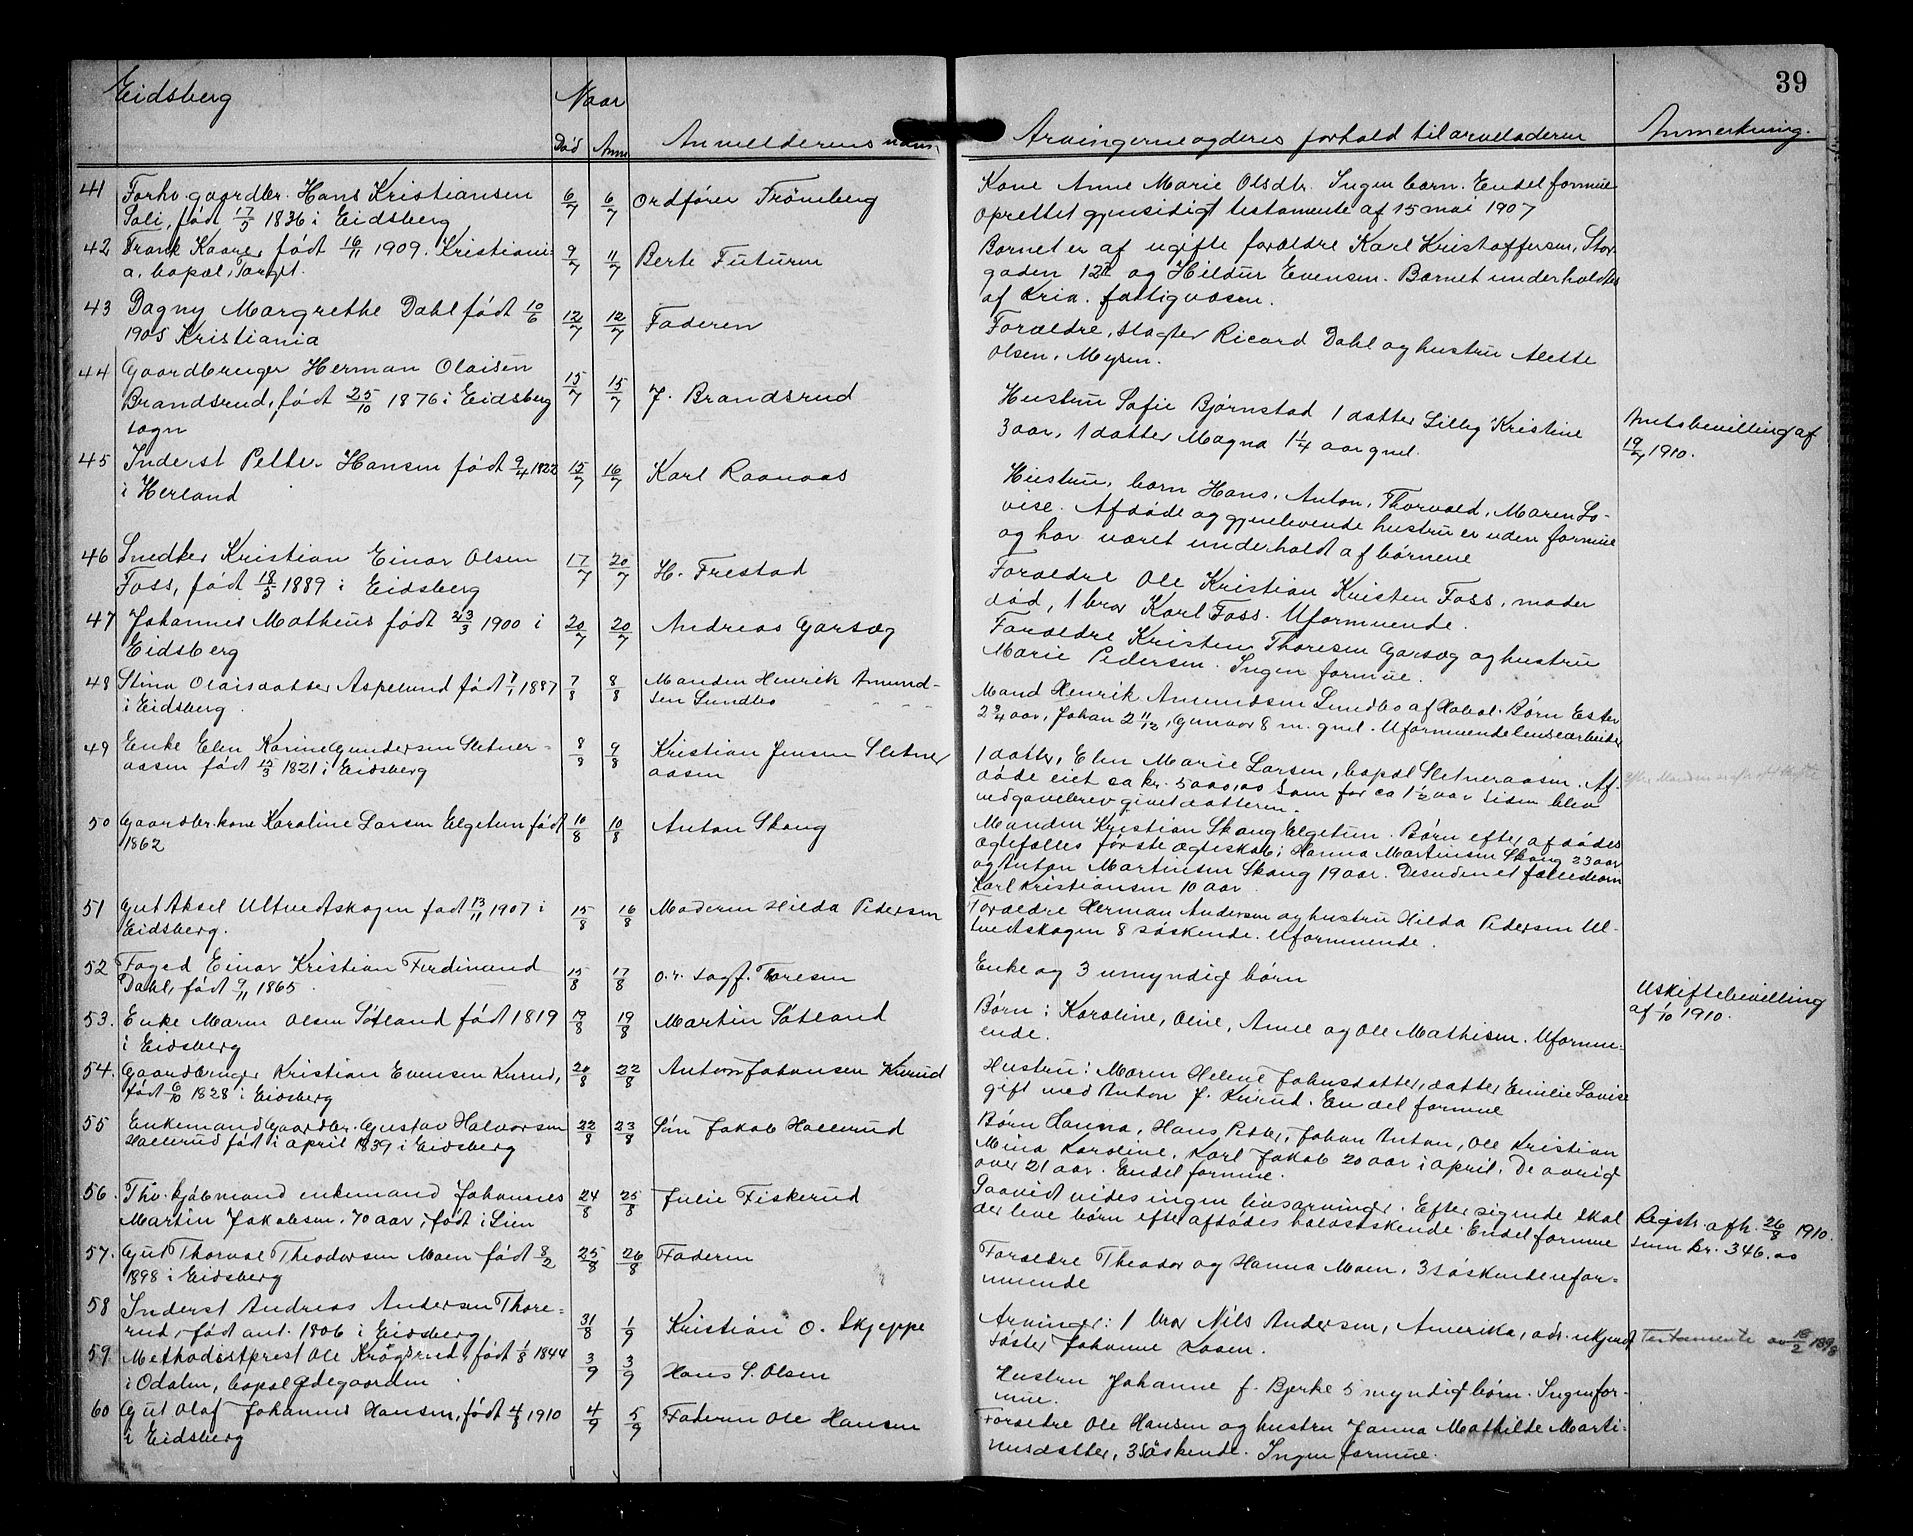 39
Eidsberg
Naar
Død Anm Anmelderens navn Arvingerne og deres forhold til arveladeren Anmerkning.
41 Forhv. gaardbr. Hans Kristiansen 6/7 6/7 Ordfører Trømborg Kone Anne Marie Olsdtr. Ingen barn. Endel formue
Soli, født 17/5 1836 i Eidsberg oprettet gjensidigt testamente af 15 mai 1907
42 Frank Kaare, født 16/11 1909. Kristiani- 9/7 11/7 Berte Futurm Barnet er af ugifte forældre Karl Kristoffersen, Stor-
a, bopæl gaden 12 og Hildur Evensen. Barnet underholdtes
af Kria. fattigvæsen.
43 Dagny Margrethe Dahl født 10/6 12/7 12/7 Faderen Forældre, slagter Ricard Dahl og hustru Alette
1905 Kristiania Olsen, Mysen.
44 Gaardbruger Herman Olaisen 15/7 15/7 J. Brandsrud Hustru Sofie Bjørnstad 1 datter Lilly Kristine
Brandsrud, født 25/10 1876 i Eidsberg 3 aar, 1 datter Magna 1 1/4 aar gml. Amtsbevilling af
sogn 19/7 1910.
45 Inderst Petter Hansen født 9/4 1822 15/7 16/7 Karl Raanaas Hustru, børn Hans, Anton, Thorvald, Maren Lo-
i Herland vise. Afdøde og gjenlevende hustru er uden formue
og har været underholdt af børnene
46 Snedker Kristian Einar Olsen 17/7 20/7 H. Frestad Forældre Ole Kristian Kristen Foss, moder
Foss, født 18/5 1889 i Eidsberg død, 1 bror Karl Foss. Uformuende.
47 Johannes Matheus født 23/3 1900 i 20/7 20/7 Andreas Garsæg Forældre Kristen Thoresen Garsæg og hustru
Eidsberg Marie Pedersen. Ingen formue.
48 Stina Olaisdatter Aspelund født 7/1 1887 7/8 8/8 Manden Henrik Amund- Mand Henrik Amundsen Lundbo af Hobøl. Børn Ester
i Eidsberg. sen Lundbo 2 3/4 aar, Johan 2 11/12, Gunvor 8 m. gml. Uformuende
49 Enke Elen Karine Gundersen Sletner- 8/8 9/8 Kristian Jensen Sletner 1 datter, Elen Marie Larsen, bopæl Sletneraasen. Af-
aasen født 15/3 1821 i Eidsberg aasen døde eiet ca kr. 5000,00 som for ca 1 1/2 aar siden blev
ved gavebrev givet datteren.
50 Gaardbr. kone Karoline Larsen Elgetun født 10/8 10/8 Anton Skaug Manden Kristian Skaug Elgetun. Børn efter afdødes
1862 ægtefælles første ægteskab: Hanna Martinsen Skaug 23 aar
og Anton Martinsen Skaug 19 aar. Desuden et fællesbarn
Karl Kristiansen 10 aar.
51 Gut Aksel Ultvedtskogen født 13/11 1907 i 15/8 16/8 Moderen Hilda Pedersen Forældre Herman Andersen og hustru Hilda Pedersen Ul-
Eidsberg. tvedtskogen 8 søskende. Uformuende.
52 Foged Einar Kristian Ferdinand 15/8 17/8 o.r. sagf. Thoresen Enke og 3 umyndig børn
Dahl, født 9/11 1865. Uskiftebevilling
af 1/10 1910.
53. Enke Maren Olsen Søtland født 1819 19/8 19/8 Martin Søtland Børn: Karoline, Oline, Anne og Ole Mathisen. Uformu-
i Eidsberg ende.
54. Gaardbruger Kristian Evensen Kurud, 20/8 22/8 Anton Johansen Kurud Hustru: Maren Helene Johnsdatter, datter Emilie Lovise
født 6/10 1828 i Eidsberg gift med Anton J. Kurud. En del formue
55 Enkemand Gaardbr. Gustav Halvorsen 22/8 23/8 Søn Jakob Hallerud Børn Hanna, Hans Petter, Johan Anton, Ole Kristian
Hallerud født i april 1839 i Eidsberg Mina Karoline, Karl Jakob 20 aar i april. De øvrig
over 21 aar. Endel formue.
56. Fhv. kjøbmand enkemand Johannes 24/8 25/8 Julie Fiskerud Saavidt vides ingen livsarvinger. Efter sigende skal
Martin Jakobsen. 70 aar, født i Lien der leve børn efter afdødes halvsøskende. Endel formue Registr. afh. 26/8 1910.
sum kr. 346.00
57. Gut Thorval Theodorsen Moen født 8/2 25/8 26/8 Faderen Forældre Theodor og Hanna Moen, 3 søskende ufor-
1898 i Eidsberg muende
58 Inderst Andreas Andersen Thore- 31/8 1/9 Kristian O. Skjeppe Arvinger: 1 bror Nils Andersen, Amerika, adr. ukjendt
rud, født ant. 1806 i Eidsberg søster Johanne Testamente av 18/2 1898
59 Methodistprest Ole Krogsrud, født 1/8 1844 3/9 3/9 Hans S. Olsen Hustru Johanne f. Bjerke 5 myndig børn. Ingen for-
i Odalen, bopæl Ødegaarden mue.
60 Gut Olaf Johannes Hansen, født 4/8 1910 4/9 5/9 Faderen Ole Hansen Forældre Ole Hansen og hustru Janna Mathilde Marti-
i Eidsberg nusdatter, 3 søskende. Ingen formue.